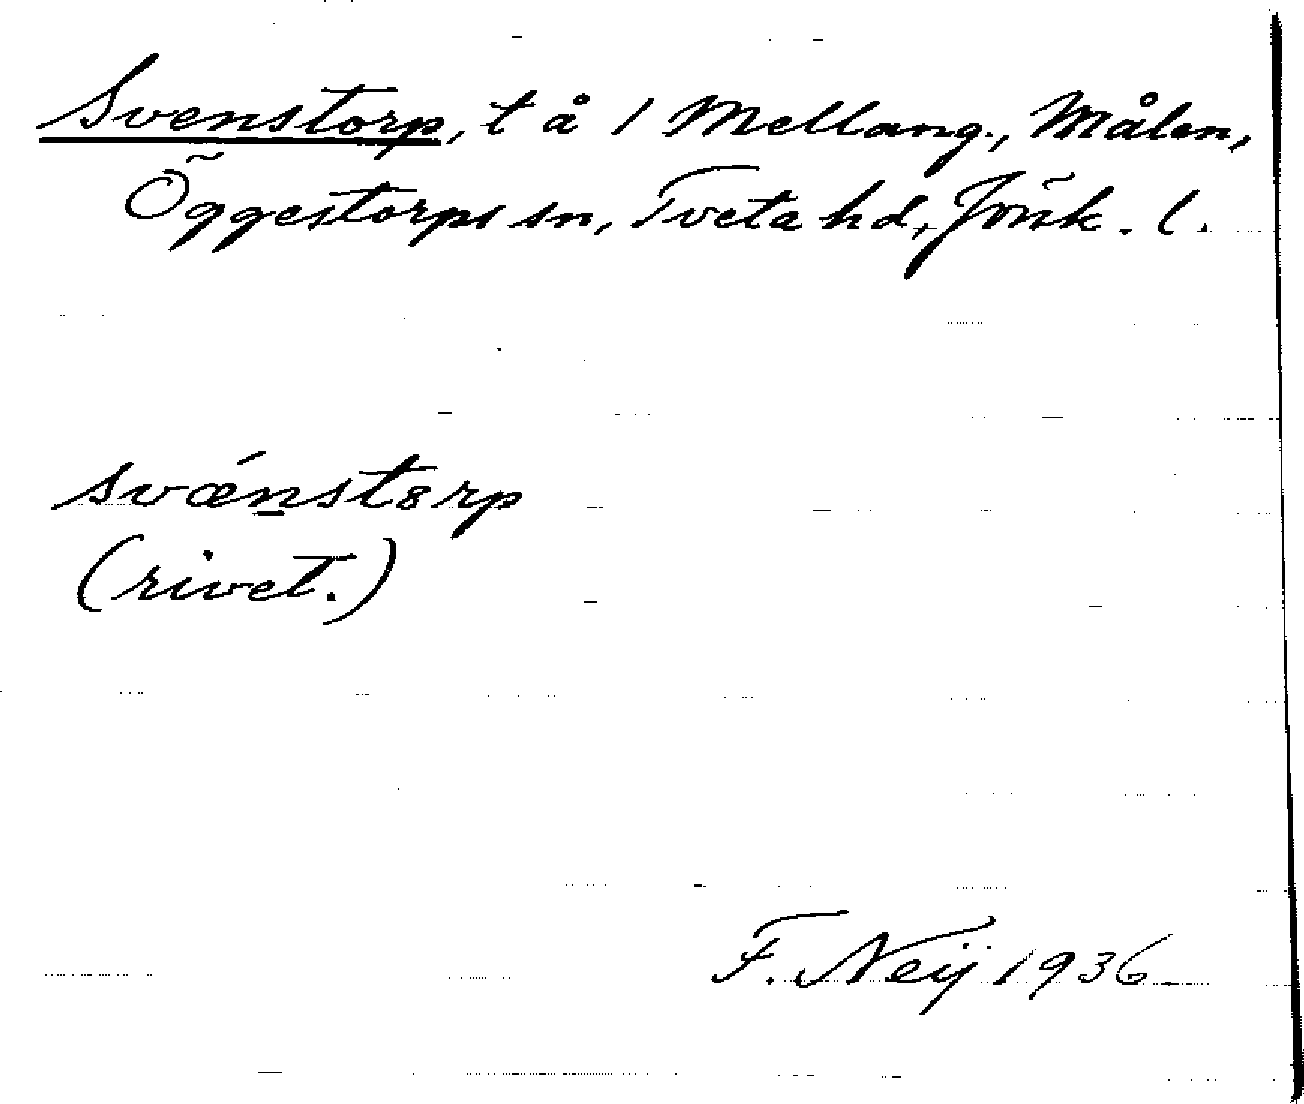 Svenstorp, t å 1 Mellang., Målen,
Öggestorps sn, Tveta hd, Jönk. l.
svænstorp
(rivet.)
F. Neij 1936